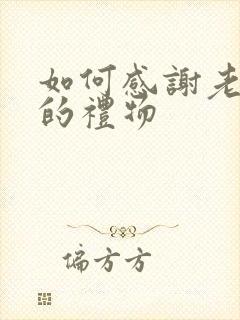 如何感謝老
的禮物
偏方方